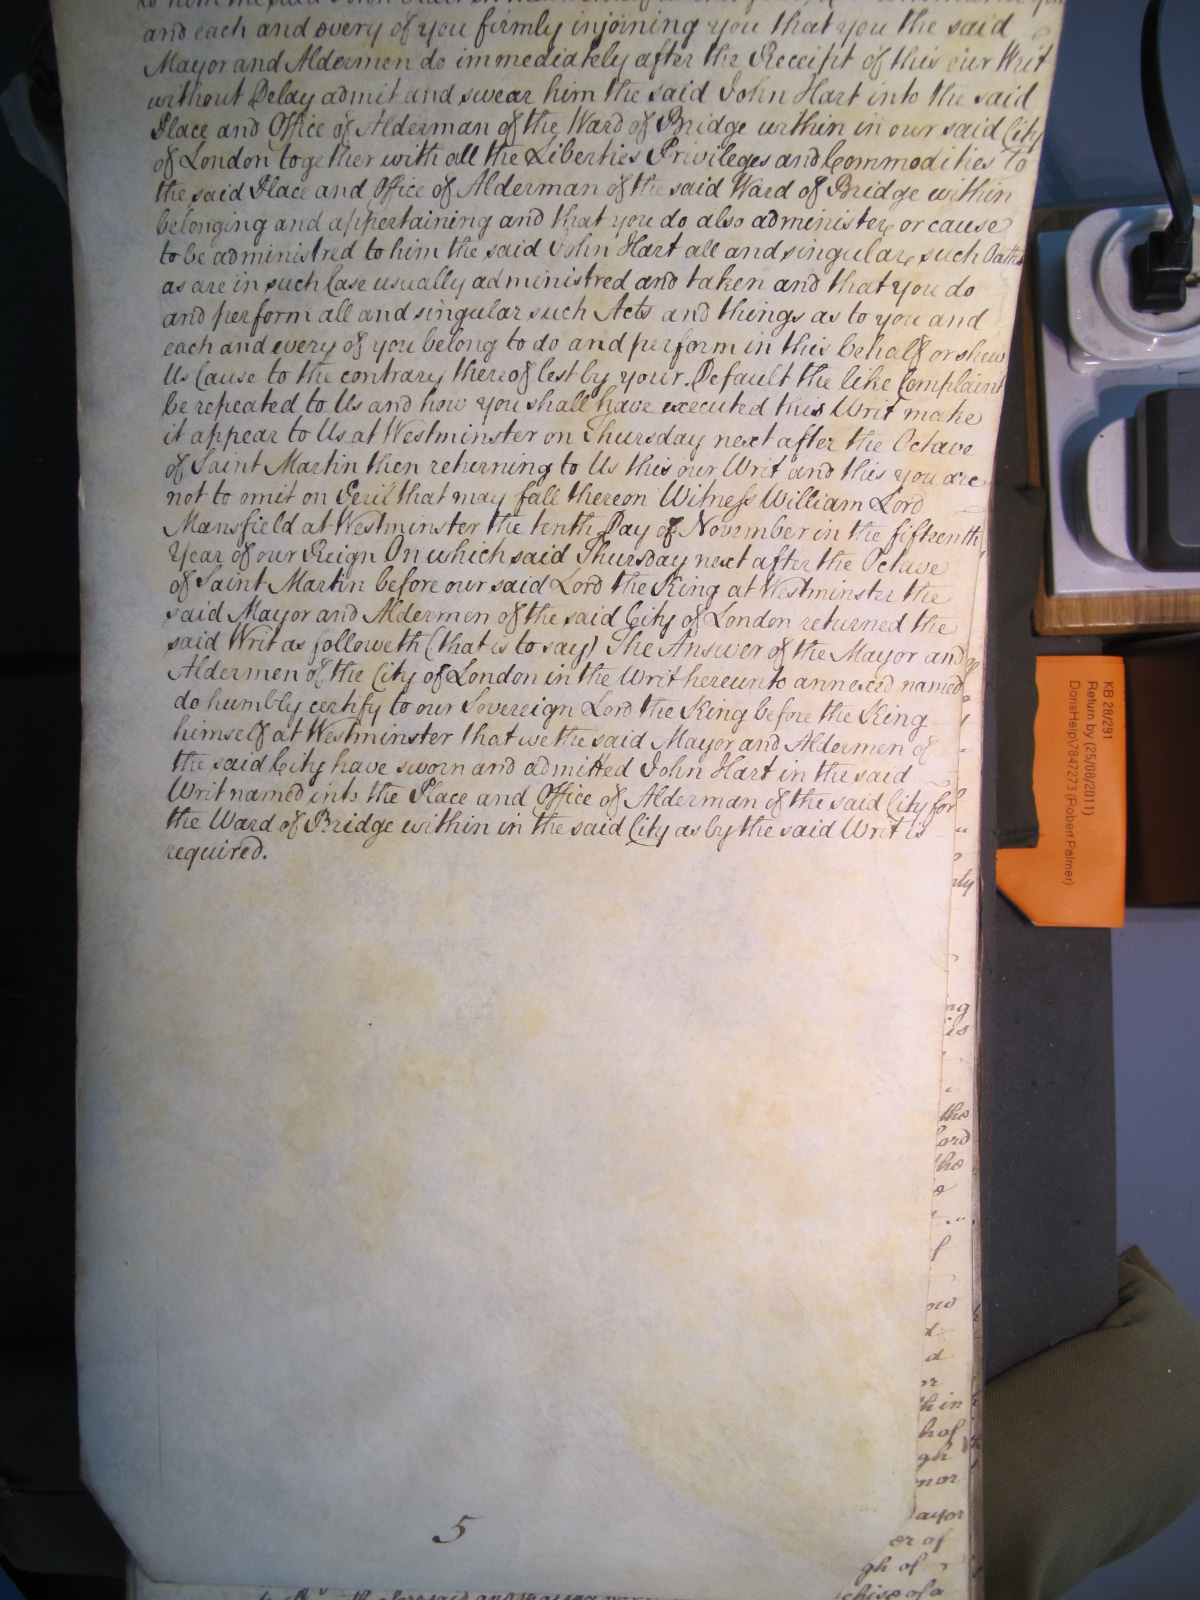 and each and every of you firmly injoining you that you the said
Mayor and Aldermen do immediately after the Receipt of this our Writ
without Delay admit and swear him the said John Hart into the said
Place and Office of Alderman of the Ward of Bridge within in our said City
of London together with all the Liberties Privileges and Commodities to
the said Place and Office of Alderman of the said Ward of Bridge within
belonging and appertaining and that you do also administer or cause
to be administred to him the said John Hart all and singular such Oaths
as are in such Case usually administred and taken and that you do
and perform all and singular such Acts and things as to you and
each and every of you belong to do and perform in this behalf or shew
Us Cause to the contrary thereof lest by your Default the like Complaint
be repeated to Us and how you shall have executed this Writ make
it appear to Us at Westminster on Thursday next after the Octave
of Saint Martin then returning to Us this our Writ and this you are
not to omit on Peril that may fall thereon Witness William Lord
Mansfield at Westminster the tenth Day of November in the fifteenth
Year of our Reign On which said Thursday next after the Octave
of Saint Martin before our said Lord the King at Westminster the
said Mayor and Aldermen of the said City of London returned the
said Writ as followeth (that is to say) The Answer of the Mayor and
Aldermen of the City of London in the Writ hereunto annexed named
do humbly certify to our Sovereign Lord the King before the King
himself at Westminster that we the said Mayor and Aldermen of
the said City have sworn and admitted John Hart in the said
Writ named into the Place and Office of Alderman of the said City for
the Ward of Bridge within in the said City as by the said Writ is
required.
5
KB 28/291
Return by (25/08/2011)
DorisHelp\7847273 (Robert Palmer)